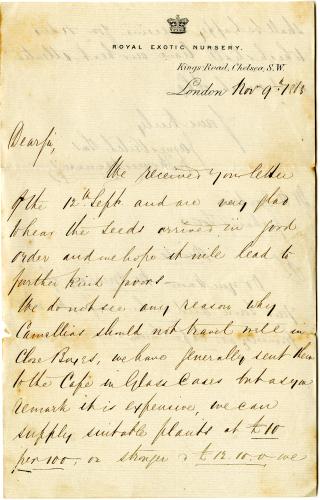 ROYAL EXOTIC NURSERY.
Kings Road, Chelsea, S.W.
London Nov 9th
Dear Sir,
We received your letter
of the 12th Sept. and are very glad
to hear the Seeds arrived in good
order and we hope it will lead to
further kind favors
We do not see any reason why
Camellias should not travel well in
Close Boxes, we have generally sent them
to the Cape in Glass Cases but as you
remark it is expensive, we can
supply suitable plants at £10
per 100, or stronger £12.10.0 we